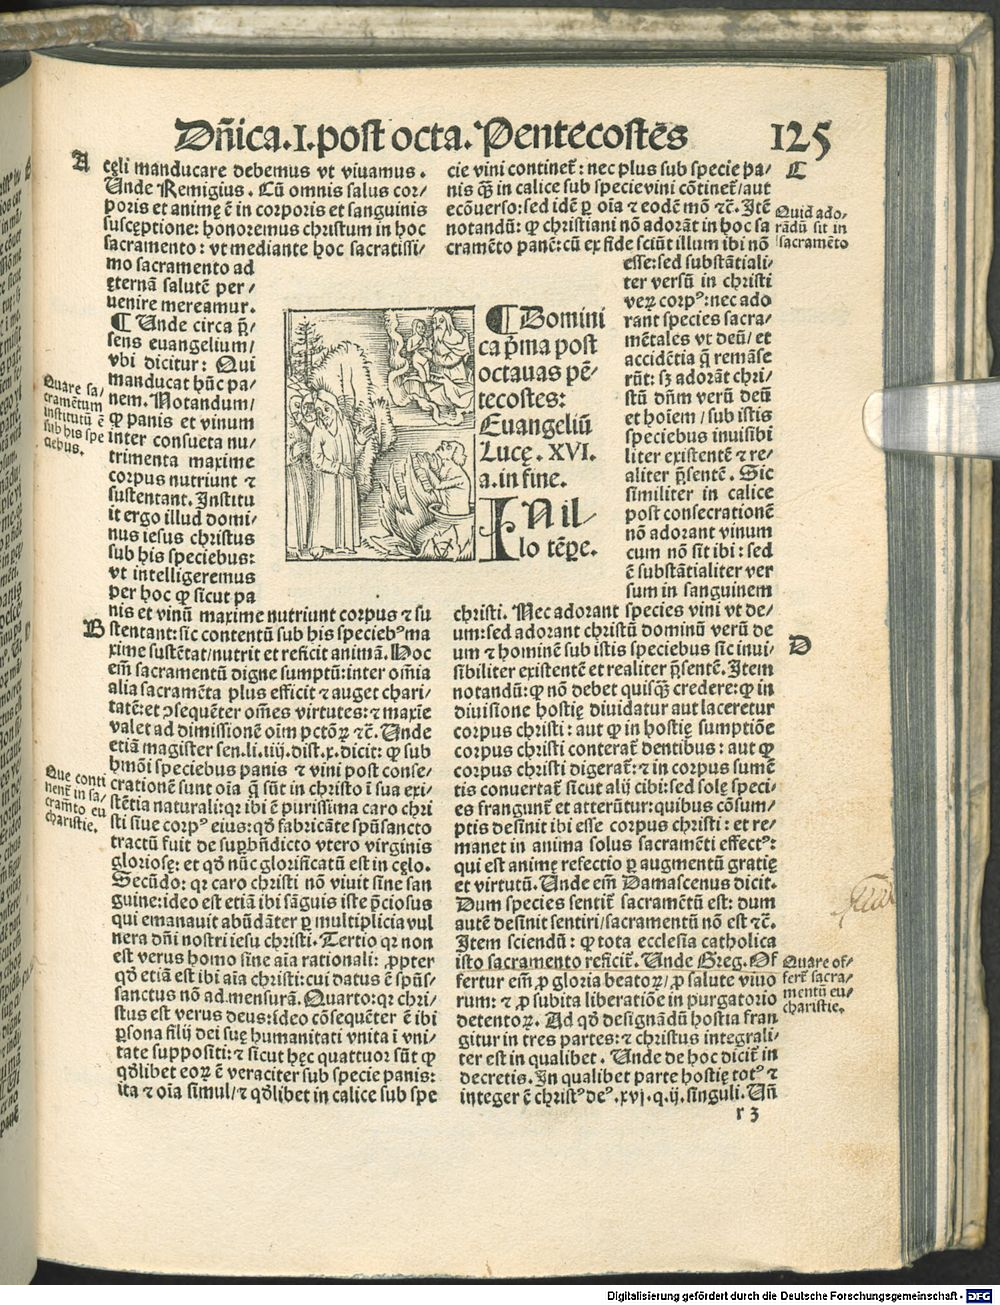 Dñica.I.post octa.Pentecostes 125
A
cęli manducare debemus vt viuamus.
Unde Remigius. Cū omnis salus cor/
poris et animę ē in corporis et sanguinis
susceptione: honoremus christum in hoc
sacramento: vt mediante hoc sacratissi/
mo sacramento ad
ęternā salutē per/
uenire mereamur.
¶ Unde circa p̄/
sens euangelium/
vbi dicitur: Qui
manducat hūc pa/
nem. Notandum/
ꝙ panis et vinum
inter consueta nu/
trimenta maxime
corpus nutriunt ⁊
sustentant. Institu
it ergo illud domi/
nus iesus christus
sub his speciebus:
vt intelligeremus
per hoc ꝙ sicut pa
nis et vinū maxime nutriunt corpus ⁊ su
B
stentant: sic contentū sub his speciebꝰ ma
xime sustētat/nutrit et reficit animā. Hoc
em̄ sacramentū digne sumptū: inter om̄ia
alia sacramēta plus efficit ⁊ auget chari/
tatē: et ɔsequēter om̄es virtutes: ⁊ maxīe
valet ad dimissionē oīm pctōꝝ ⁊c̄. Unde
etiā magister sen.li.iiij.dist.x.dicit: ꝙ sub
hmōi speciebus panis ⁊ vini post conse/
crationē sunt oīa q̄ sūt in christo ī sua exi/
stētia naturali: qꝛ ibi ē purissima caro chri
sti siue corpꝰ eius: qd̄ fabricāte spūsancto
tractū fuit de suꝑbn̄dicto vtero virginis
gloriosę: et qd̄ nūc glorificatū est in cęlo.
Secūdo: qꝛ caro christi nō viuit sine san
guine: ideo est etiā ibi sāguis iste p̄ciosus
qui emanauit abūdāter ꝑ multiplicia vul
nera dn̄i nostri iesu christi. Tertio qꝛ non
est verus homo sine aīa rationali: ꝓpter
qd̄ etiā est ibi aīa christi: cui datus ē spūs/
sanctus nō ad mensurā. Quarto: qꝛ chri/
stus est verus deus: ideo cōsequēter ē ibi
ꝑsona filij dei suę humanitati vnita ī vni/
tate suppositi: ⁊ sicut hęc quattuor sūt ꝙ
qd̄libet eoꝝ ē veraciter sub specie panis:
ita ⁊ oīa simul/⁊ qd̄libet in calice sub spe
Quare sa/
cramētum
institutū ē
sub his spe
ciebus.
Que conti
nent̄ in sa/
cram̄to eu
charistie.
¶ Domini
ca p̄ma post
octauas pē/
tecostes:
Euangeliū
Lucę. XVI.
a. in fine.
IN il/
lo tēꝑe.
cie vini continet̄: nec plus sub specie pa/
nis qͣ̄ in calice sub specie vini cōtinet̄/aut
ecōuerso: sed idē ꝑ oīa ⁊ eodē mō ⁊c̄. Itē
notandū: ꝙ christiani nō adorāt in hoc sa
cramēto panē: cū ex fide sciūt illum ibi nō
esse: sed substātiali/
ter versū in christi
veꝝ corpꝰ: nec ado
rant species sacra/
mētales vt deū/ et
accidētia q̄ remāse
rūt: sꝫ adorāt chri/
stū dn̄m verū deū
et hoīem / sub istis
speciebus inuisibi
liter existentē ⁊ re/
aliter p̄sentē. Sic
similiter in calice
post consecrationē
nō adorant vinum
cum nō sit ibi: sed
ē substātialiter ver
sum in sanguinem
christi. Nec adorant species vini vt de/
um: sed adorant christū dominū verū de
um ⁊ hominē sub istis speciebus sic inui/
sibiliter existentē et realiter p̄sentē. Item
notandū: ꝙ nō debet quisqͣ̄ credere: ꝙ in
diuisione hostię diuidatur aut laceretur
corpus christi: aut ꝙ in hostię sumptiōe
corpus christi conterat̄ dentibus: aut ꝙ
corpus christi digerat̄: ⁊ in corpus sumē
tis conuertat̄ sicut alij cibi: sed solę speci/
es frangunt̄ et atterūtur: quibus cōsum/
ptis desinit ibi esse corpus christi: et re/
manet in anima solus sacramēti effectꝰ:
qui est animę refectio ꝑ augmentū gratię
et virtutū. Unde em̄ Damascenus dicit.
Dum species sentit̄ sacramētū est: dum
autē desinit sentiri/sacramentū nō est ⁊c̄.
Item sciendū: ꝙ tota ecclesia catholica
isto sacramento reficit̄. Unde Greg. Of
fertur em̄ ꝓ gloria beatoꝝ/ꝓ salute viuo
rum: ⁊ ꝓ subita liberatiōe in purgatorio
detentoꝝ. Ad qd̄ designādū hostia fran
gitur in tres partes: ⁊ christus integrali/
ter est in qualibet. Unde de hoc dicit̄ in
decretis. In qualibet parte hostię totꝰ ⁊
integer ē christꝰ deꝰ.xvj.q.ij.singuli. Un̄
r 3
C
Quid ado/
rādū sit in
sacramēto
D
Quare of/
fert̄ sacra/
mentū eu/
charistie.
Digitalisierung gefördert durch die Deutsche Forschungsgemeinschaft - DFG